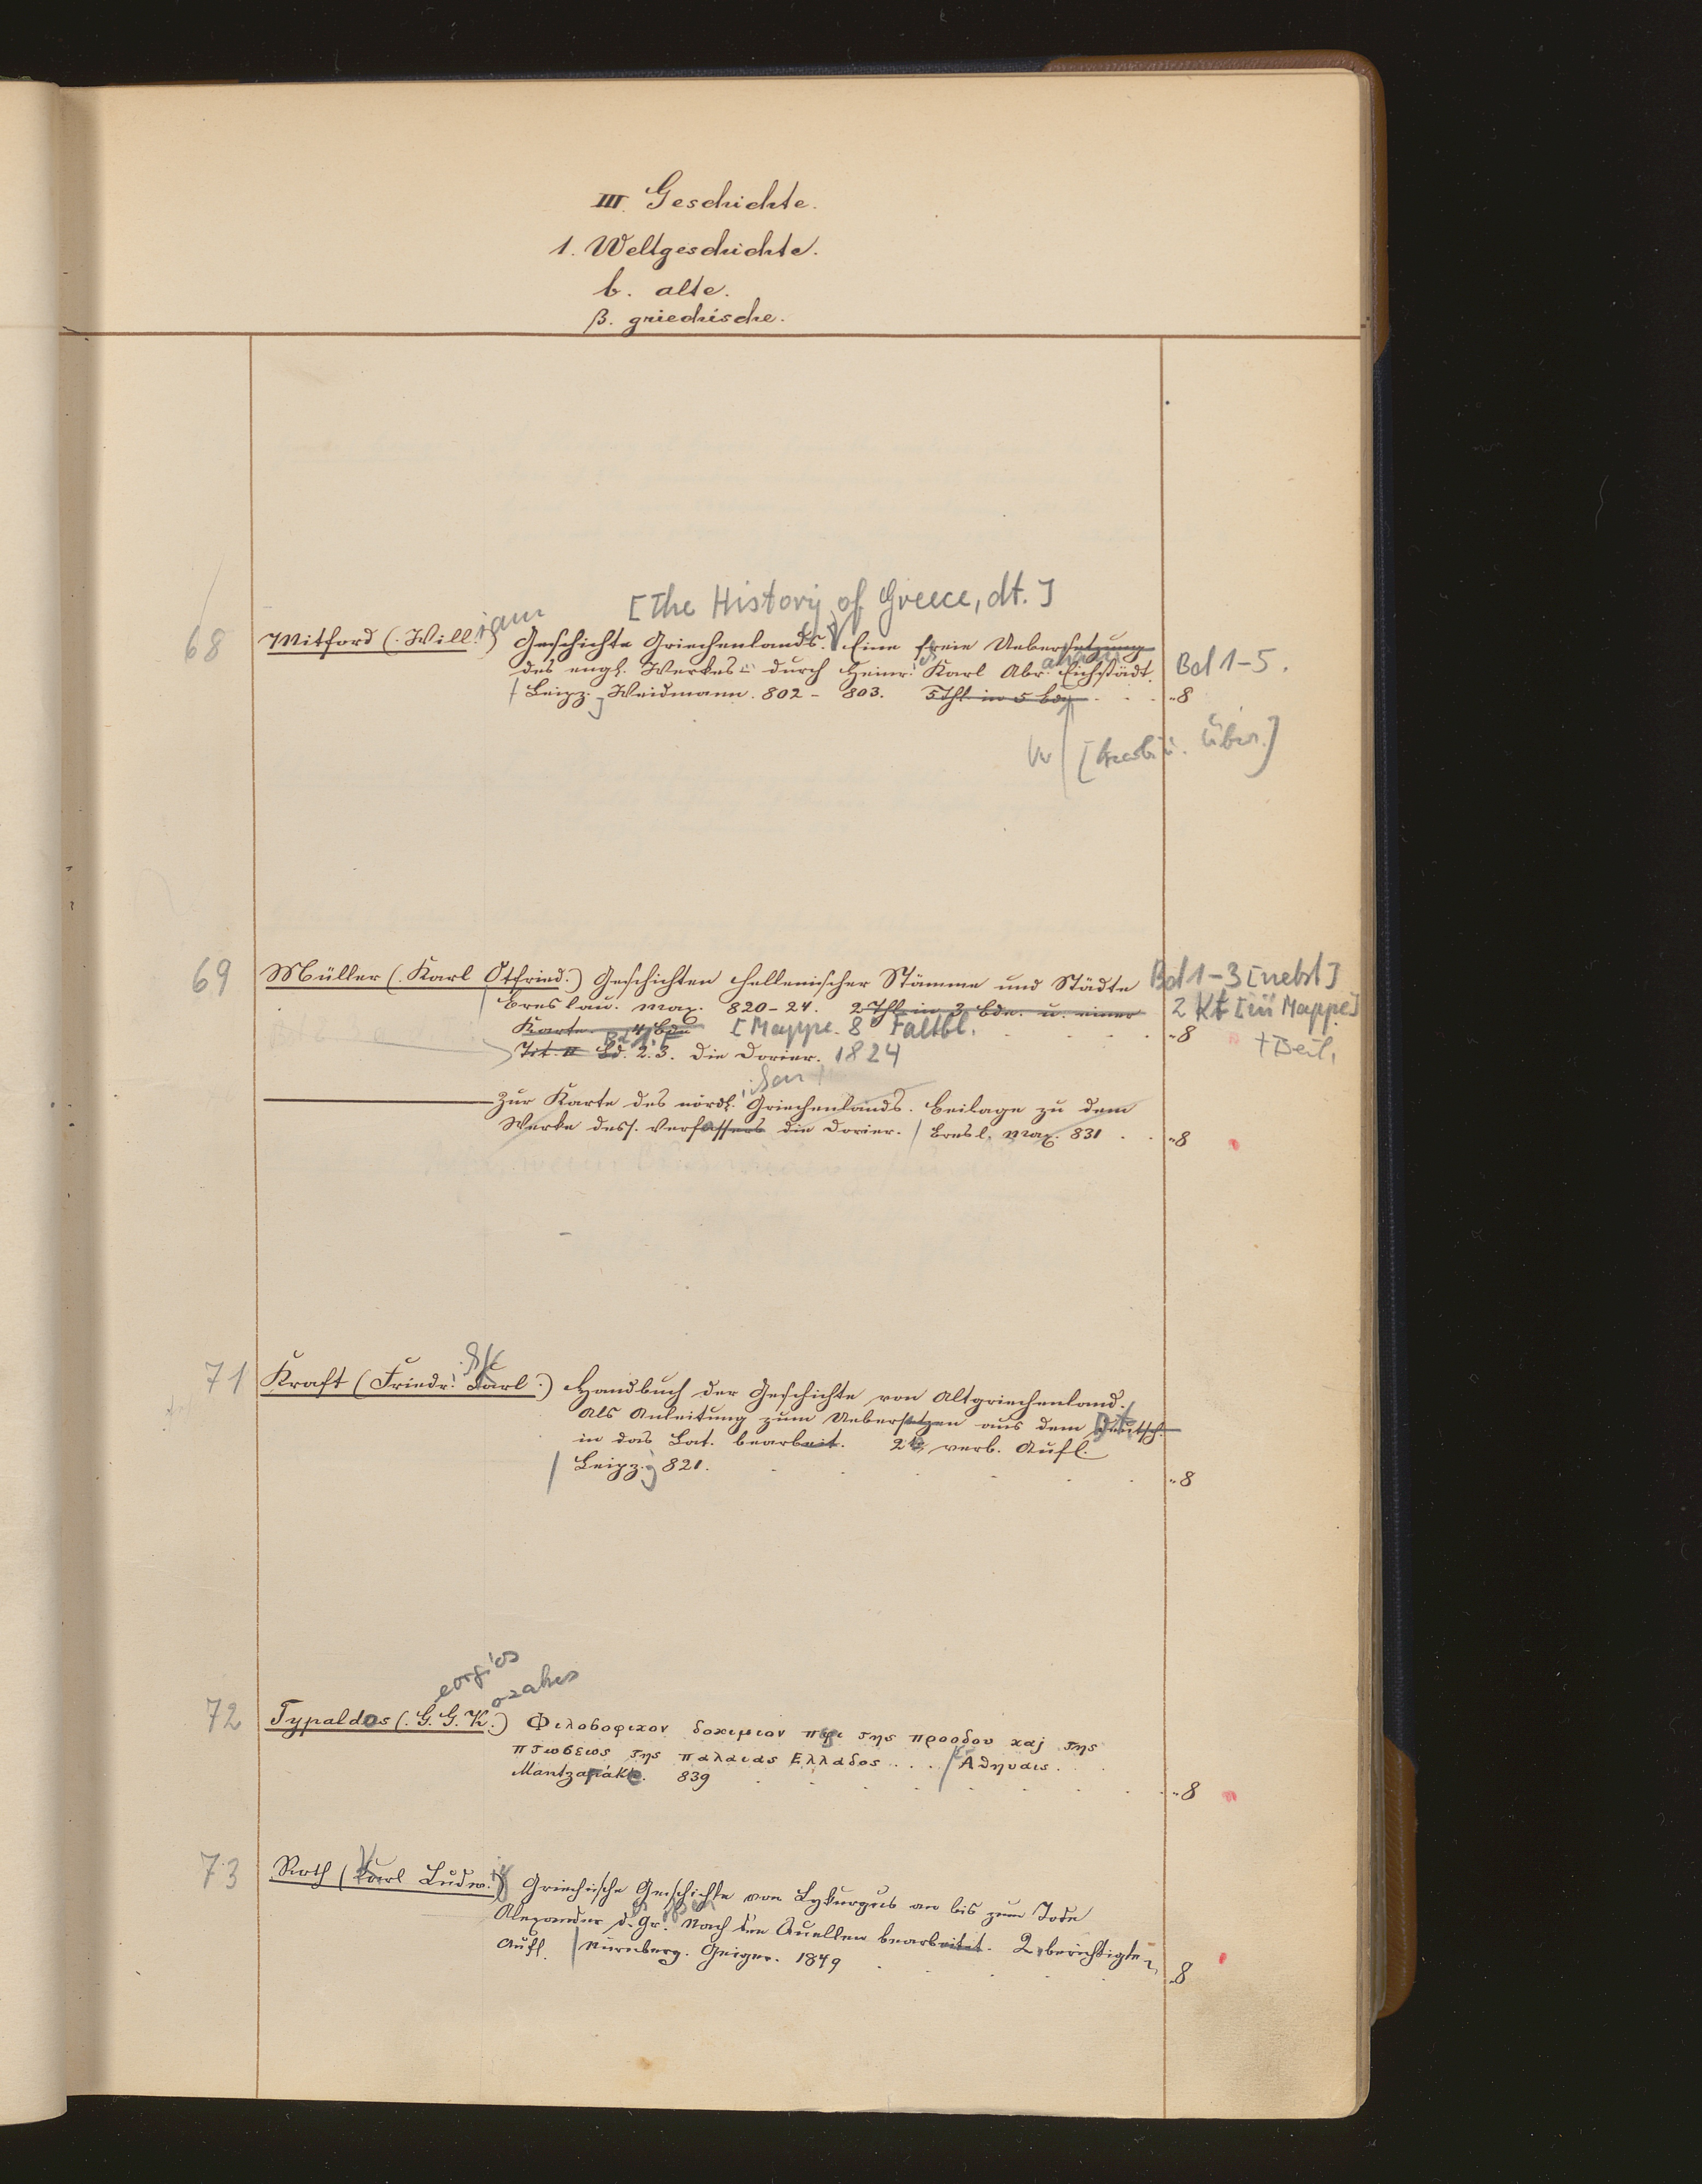 III. Geschichte.
1. Weltgeschichte.
b. alte.
β. griechische.
[The History of Greece, dt.]
iam
68 Mitford (. Will.) Geschichte Griechenlands. Eine freie Uebersetzung
des engl. Werkes durch Heinr. Karl Abr. Eichstädt. Bd 1-5.
Leipz. Weidmann. 802 - 803. 5 Thl. in 5 Bdn . . "8
[Übers.]
69 Müller (. Karl Otfried.) Geschichten hellenischer Stämme und Städte Bd 1-3 [nebst]
Breslau. Max. 820-24. 2 Thl. in 3 Bdn. u. einer 2 Kt [in Mappe]
Karte. 4 Bde [Mappe. 8 Faltbl. "8 + Beil.
Tit. II Bd. 2.3. Die Dorier. 1824
Zur Karte des nördl. Griechenlands. Beilage zu dem
Werke dess. Verfassers die Dorier. / Bresl. Max. 831 . . "8
71 Kraft (Friedr. Karl.) Handbuch der Geschichte von Altgriechenland.
Als Anleitung zum Uebersetzen aus dem Deutsch.
in das Lat. bearbeit. 2 verb. Aufl.
/ Leipzg 821. "8
eorgios
ozakes
72 Typaldos (. G. G. K.) Φιλοσοφικον δοκιμιον περι της προοδου και της
πτωσεως της παλαιας Ελλαδος . . . / Αθηναις.
Mantzaráke. 839 "8
73 Roth (Karl Ludw.) Griechische Geschichte von Lykurgus an bis zum Tode
Alexander d. Gr. Nach den Quellen bearbeitet. 2 berichtigte
Aufl. / Nürnberg. Geiger. 1849 "8